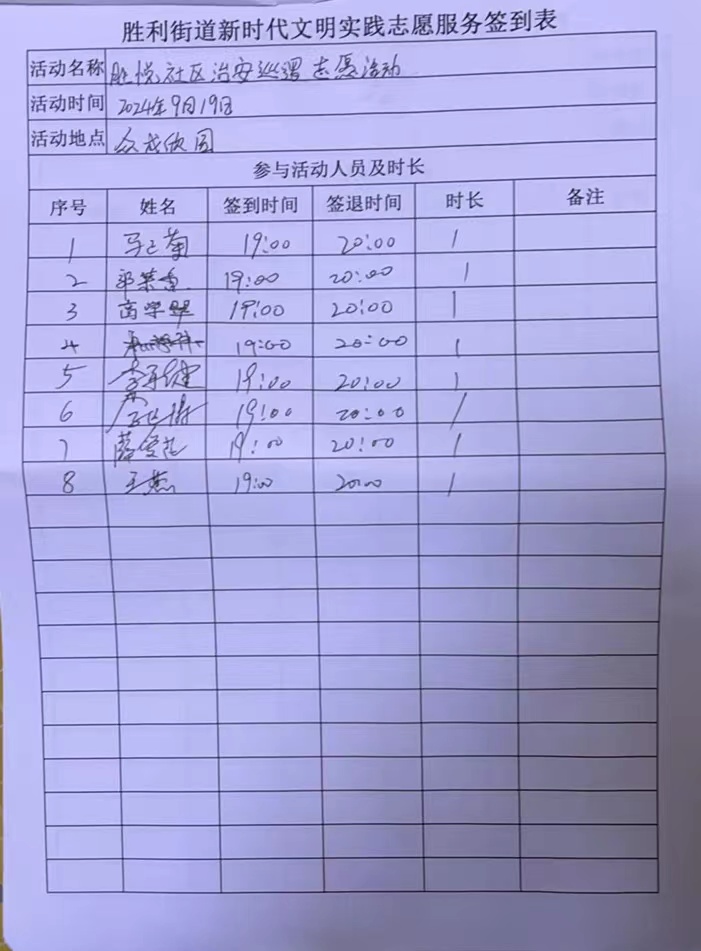 胜利街道新时代文明实践志愿服务签到表
活动名称 胜悦社区治安巡逻志愿活动
活动时间 2024年9月19日
活动地点 众成欣园
参与活动人员及时长
序号 姓名 签到时间 签退时间 时长 备注
1 19:00 20:00 1
2 19:00 20:00 1
3 高学翠 19:00 20:00 1
4 19:00 20:00 1
5 19:00 20:00 1
6 19:00 20:00 1
7 19:00 20:00 1
8 王燕 19:00 20:00 1